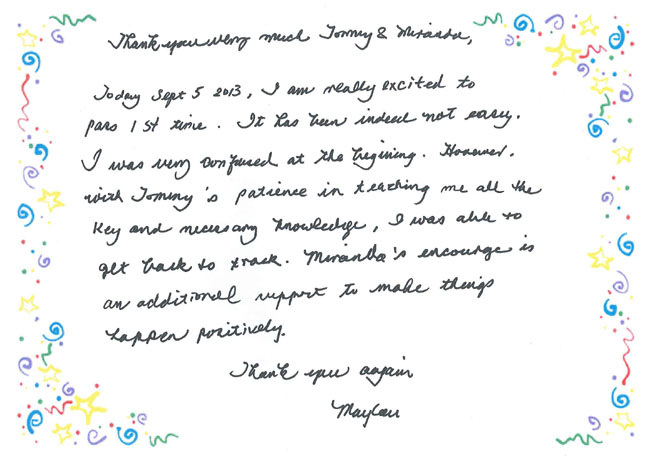 Thank you very much Tommy & Miranda,
Today Sept 5 2013, I am really excited to
pass 1st time. It has been indeed not easy.
I was very confused at the begining. However,
with Tommy's patience in teaching me all the
key and necessary knowledge, I was able to
get back to track. Miranda's encourage is
an additional support to make things
happen positively.
Thank you again